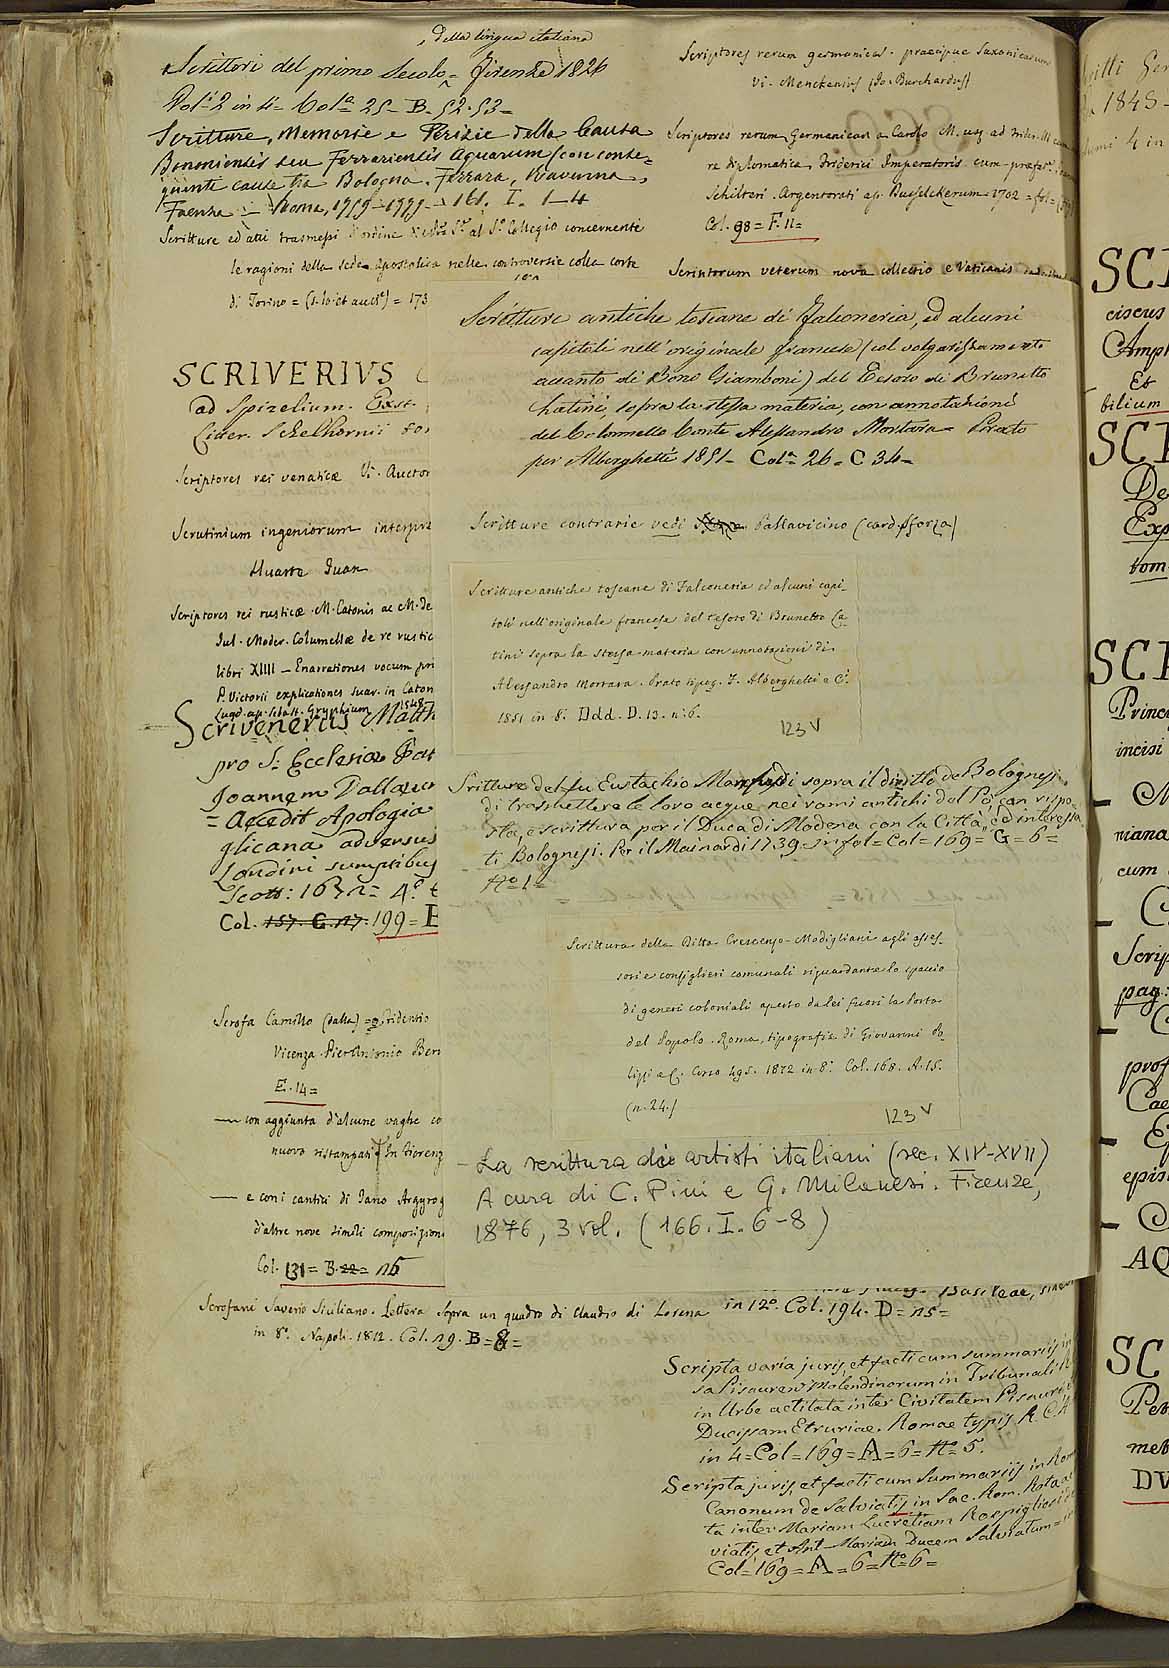 della lingua italiana
Scrittori del primo Secolo = Firenze 1826
Vol.i 2 in 4= Col.a 25- B. 52.53=
Scritture, Memorie e Perizie della Causa
Bononiensis seu Ferrariensis Aquarum (con conse=
guente cause tra Bologna, Ferrara, Ravenna,
Faenza = Roma, 1759-1779 - 161. I. 1-4
Scritture ed atti trasmessi d'ordine di S.r al S. Collegio concernenti
le ragioni della sede apostolica nelle controversie colla corte
di Torino = (s. lo. et auct.) = 173
SCRIVERIVS
ad Spizelium. Exst.
(Lider. Schelhornii
Scriptores rei venaticæ Vi. Auctor
Scrutinium ingeniorum interpre
Huarte Juan
Scriptores rei rusticæ. M. Catonis ac M. Te
Jul. Moder. Columellæ de re rustic
libri XIIII - Enarrationes vocum pri
P. Victorii explicationes suar. in Caton
Lugd. ap. Sebast. Gryphium 1548
Scrivenerius Matth
pro S. Ecclesiæ Pat
Joannem Dallæu
= Accedit Apologia
glicana adversus
Londini sumptibus
Scott: 1672= 4.o
Col. 157. G. 17. 199= E
Scrofa Camillo (dalla) = Fidentio
Vicenza. Pier Antonio Ber
E. 14=
— con aggiunta d'alcune vaghe co
nuovo ristampati In Fiorenz
— e con i cantici di Jano Argyrog
d'altre nove simili composizion
Col. 131= B. 22= 15
Scrofani Saverio Siciliano. Lettera sopra un quadro di Claudio di Lorena
in 8.o Napoli. 1812. Col. 19. B= 8=
Scriptores rerum germanicar. praecipue Saxonicarum
Vi. Menckenius (Jo. Burchardus)
Scriptores rerum Germanicar. a Carolo M. usq ad Frider. III
re diplomatica Friderici Imperatoris cum præfat.
Schilteri. Argentorati ap. 1702 = fol=
Col. 98= F. 11=
Scriptorum veterum nova collectio e Vaticanis
Scritture antiche toscane di Falconeria, ed alcuni
capitoli nell'originale francese (col volgarizzamento
accanto di Bono Giamboni) del Tesoro di Brunetto
Latini, sopra la stessa materia, con annotazioni
del Colonnello Conte Alessandro Mortara = Prato
per Alberghetti 1851 - Col.a 26 - C 34 -
Scritture contrarie vedi Pallavicino (card. Sforza)
Scritture antiche toscane di Falconeria ed alcuni capi-
toli nell'originale francese del tesoro di Brunetto La-
tini sopra la stessa materia con annotazioni di
Alessandro Mortara. Prato tipog. F. Alberghetti e C.
1851 in 8. Ddd. D. 13. n. 6.
123 V
Scritture del fu Eustachio Manfredi sopra il diritto de Bolognesi
di trasmettere le loro acque nei rami antichi del Po, con rispo-
sta, e scrittura per il Duca di Modena con la Città, ed interessa
ti Bolognesi. Per il Mainardi 1739 = in fol= Col= 169= G= 6=
N.o 1=
Scrittura della Ditta Crescenzo-Modigliani agli asses-
sori e consiglieri comunali riguardante lo spaccio
di generi coloniali aperto da lei fuori la Porta
del Popolo. Roma, tipografia di Giovanni Po-
lizzi e C. Corso 495. 1872 in 8.o Col. 168. A. 15.
(n. 24.)
123 V
- La scrittura di artisti italiani (sec. XIV-XVII)
A cura di C. Pini e G. Milanesi. Firenze,
1876, 3 vol. (166. I. 6-8)
Basileae,
in 12.o Col. 194. D= 15=
Scripta varia juris, et facti cum summariis in
sa Pisauren Molendinorum in Tribunali
in Urbe actitata inter Civitatem Pisauri
Ducissam Etruriae. Romae typis R. C. A
in 4= Col= 169= A= 6= N.o 5.
Scripta juris, et facti cum summariis in Rom
Canonum de Salviatis in Sac. Rom. Rota
ta inter Mariam Lucretiam Rospigliosi
viatis, et Ant Mariam Ducem Salviatum=
Col= 169= A= 6= N.o 6=
1848
4 in
SCI
ciscus
Ampl
Et
bilium
SCI
De
Exp
tom
SCI
Princ
incisi
- M
niana
cum
- C
Scrip
pag:
prof
Cae
- E
epis
AQ
SC
Pet
met
DV